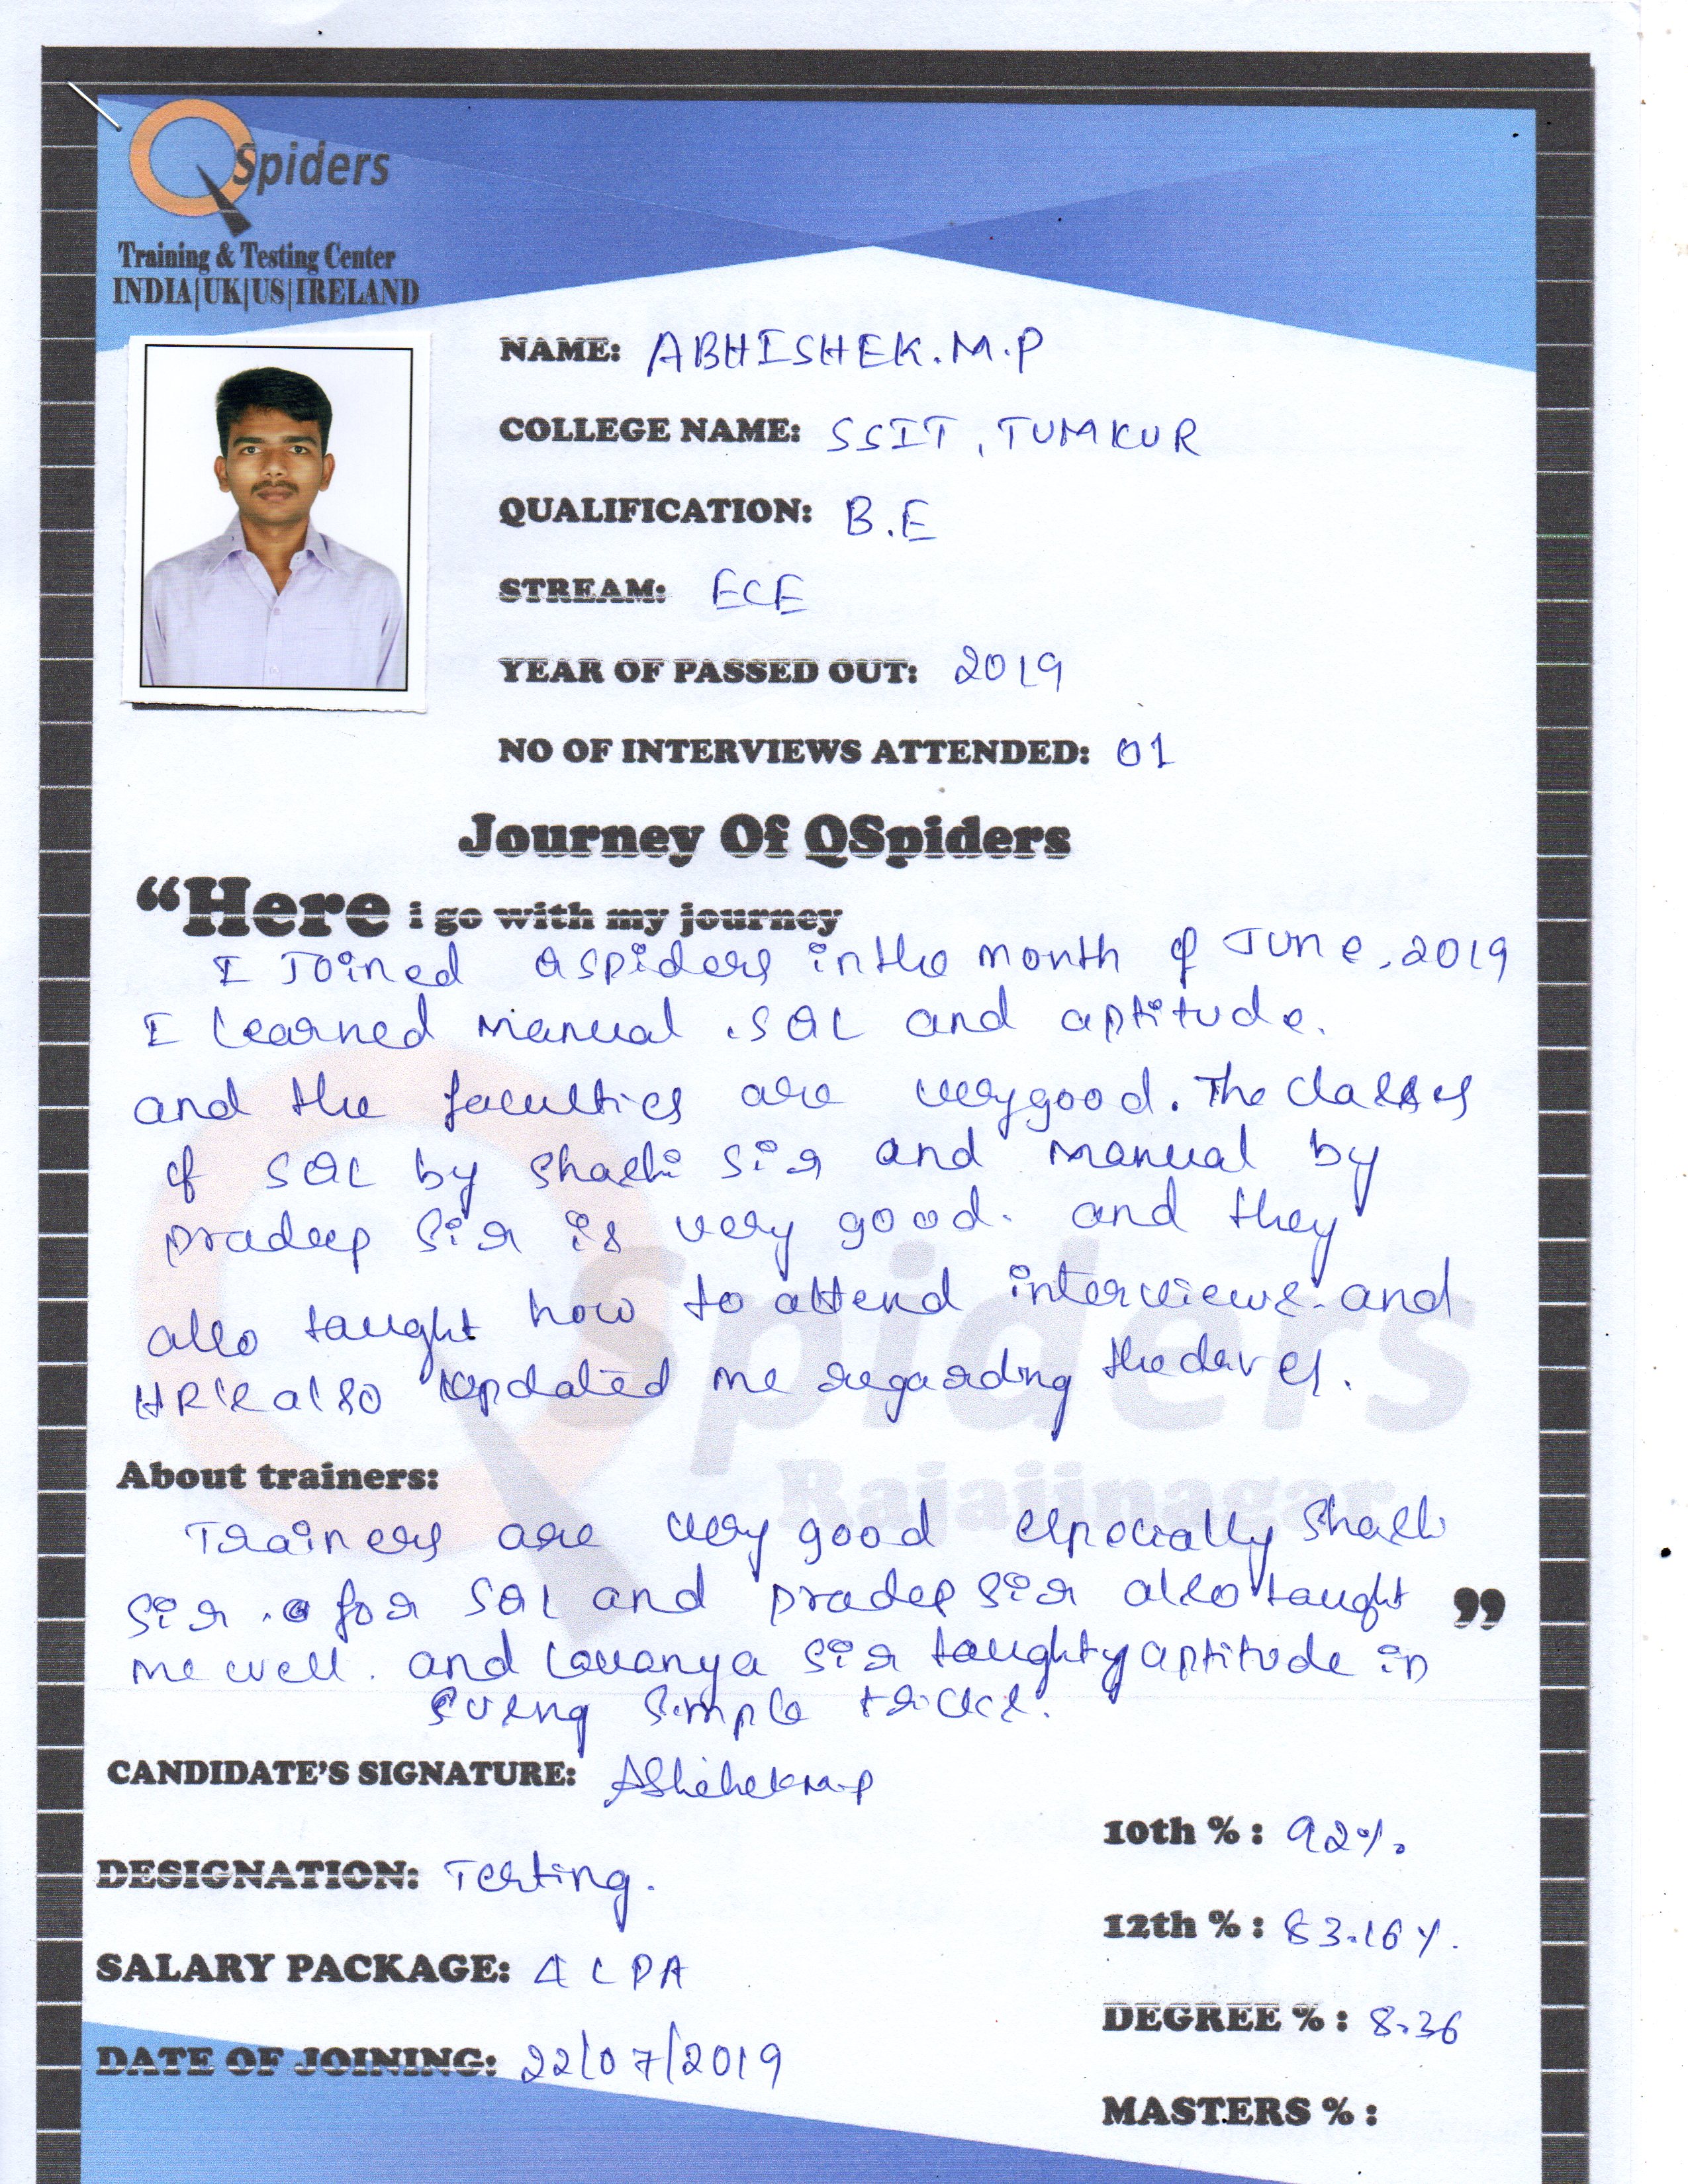 QSpiders
Training & Testing Center
INDIA|UK|US|IRELAND
NAME: ABHISHEK.M.P
COLLEGE NAME: SSIT, TUMKUR
QUALIFICATION: B.E
STREAM: ECE
YEAR OF PASSED OUT: 2019
NO OF INTERVIEWS ATTENDED: 01
Journey Of QSpiders
“Here i go with my journey
I Joined Qspiders in the month of June, 2019
I learned manual .SQL and aptitude.
and the faculties are very good. The classes
of SQL by Shashi Sir and manual by
pradeep Sir is very good. and they
also taught how to attend interviews. and
HR's also updated me regarding the
QSpiders
Rajajinagar
About trainers:
Trainers are very good espocially Shashi
Sir . for SQL and pradep Sir also taught ”
me well. and Lavanya Sir taught aptitude in
simple tricks.
CANDIDATE'S SIGNATURE: Abhishek M.P
10th %: 92%.
DESIGNATION: Testing.
12th %: 83.16%.
SALARY PACKAGE: 4 LPA
DEGREE %: 8.36
DATE OF JOINING: 22/07/2019
MASTERS %: